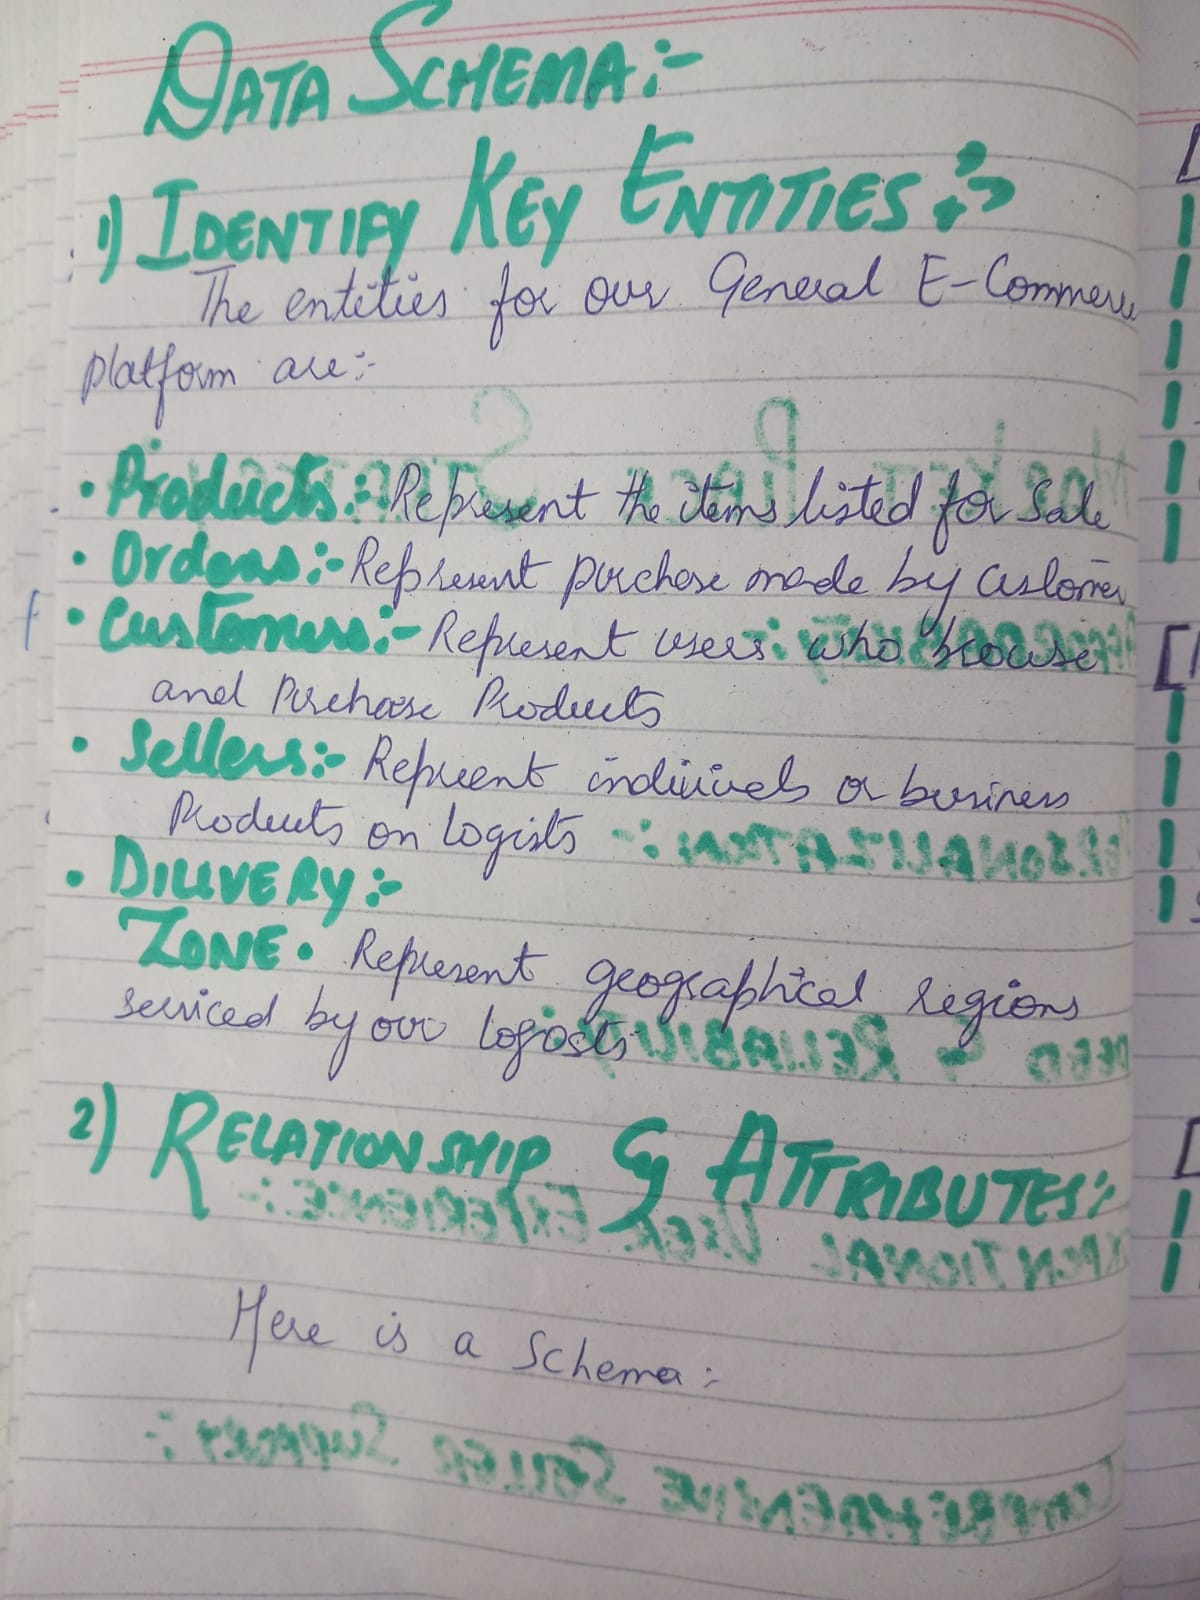 DATA SCHEMA:-
1) IDENTIFY KEY ENTITIES:-
The entities for our General E-Commerce
platform are:-
• Products:- Represent the items listed for Sale
• Orders:- Represent purchase made by customer
• Customers:- Represent users who browse
and Purchase Products
• Sellers:- Represent or business
Products on Logists
• DILIVERY:-
ZONE • Represent geographical regions
serviced by our Logists
2) RELATIONSHIP & ATTRIBUTES:-
Here is a Schema:-